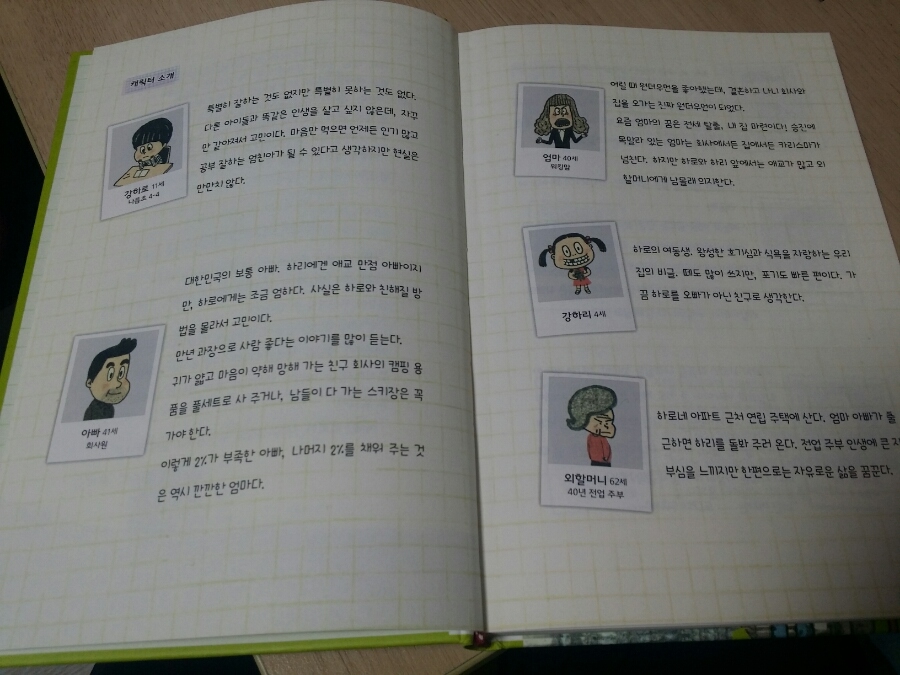 캐릭터 소개
특별히 잘하는 것도 없지만 특별히 못하는 것도 없다.
다른 아이들과 똑같은 인생을 살고 싶지 않은데, 자꾸
만 같아져서 고민이다. 마음만 먹으면 언제든 인기 많고
공부 잘하는 엄친아가 될 수 있다고 생각하지만 현실은
만만치 않다.
강하로 11세
나름초 4-4
대한민국의 보통 아빠. 하리에겐 애교 만점 아빠이지
만, 하로에게는 조금 엄하다. 사실은 하로와 친해질 방
법을 몰라서 고민이다.
만년 과장으로 사람 좋다는 이야기를 많이 듣는다.
귀가 얇고 마음이 약해 망해 가는 친구 회사의 캠핑 용
품을 풀세트로 사 주거나, 남들이 다 가는 스키장은 꼭
가야 한다.
이렇게 2%가 부족한 아빠, 나머지 2%를 채워 주는 것
은 역시 깐깐한 엄마다.
아빠 41세
회사원
어릴 때 원더우먼을 좋아했는데, 결혼하고 나니 회사와
집을 오가는 진짜 원더우먼이 되었다.
요즘 엄마의 꿈은 전세 탈출, 내 집 마련이다. 승진에
목말라 있는 엄마는 회사에서든 집에서든 카리스마가
넘친다. 하지만 하로와 하리 앞에서는 애교가 많고 외
할머니에게 남몰래 의지한다.
엄마 40세
워킹맘
하로의 여동생. 왕성한 호기심과 식욕을 자랑하는 우리
집의 비글. 떼도 많이 쓰지만, 포기도 빠른 편이다. 가
끔 하로를 오빠가 아닌 친구로 생각한다.
강하리 4세
하로네 아파트 근처 연립 주택에 산다. 엄마 아빠가 출
근하면 하리를 돌봐 주러 온다. 전업 주부 인생에 큰 자
부심을 느끼지만 한편으로는 자유로운 삶을 꿈꾼다.
외할머니 62세
40년 전업 주부